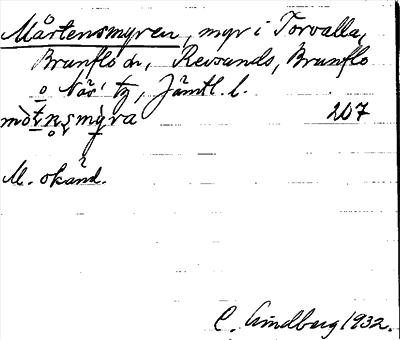 Mårtensmyren, myr i Torvalla,
Brunflo sn, Revsunds, Brunflo
o Näs' tg, Jämtl. l.
mòtnsmỳra 207
M. okänd.
C. Lindberg 1932.